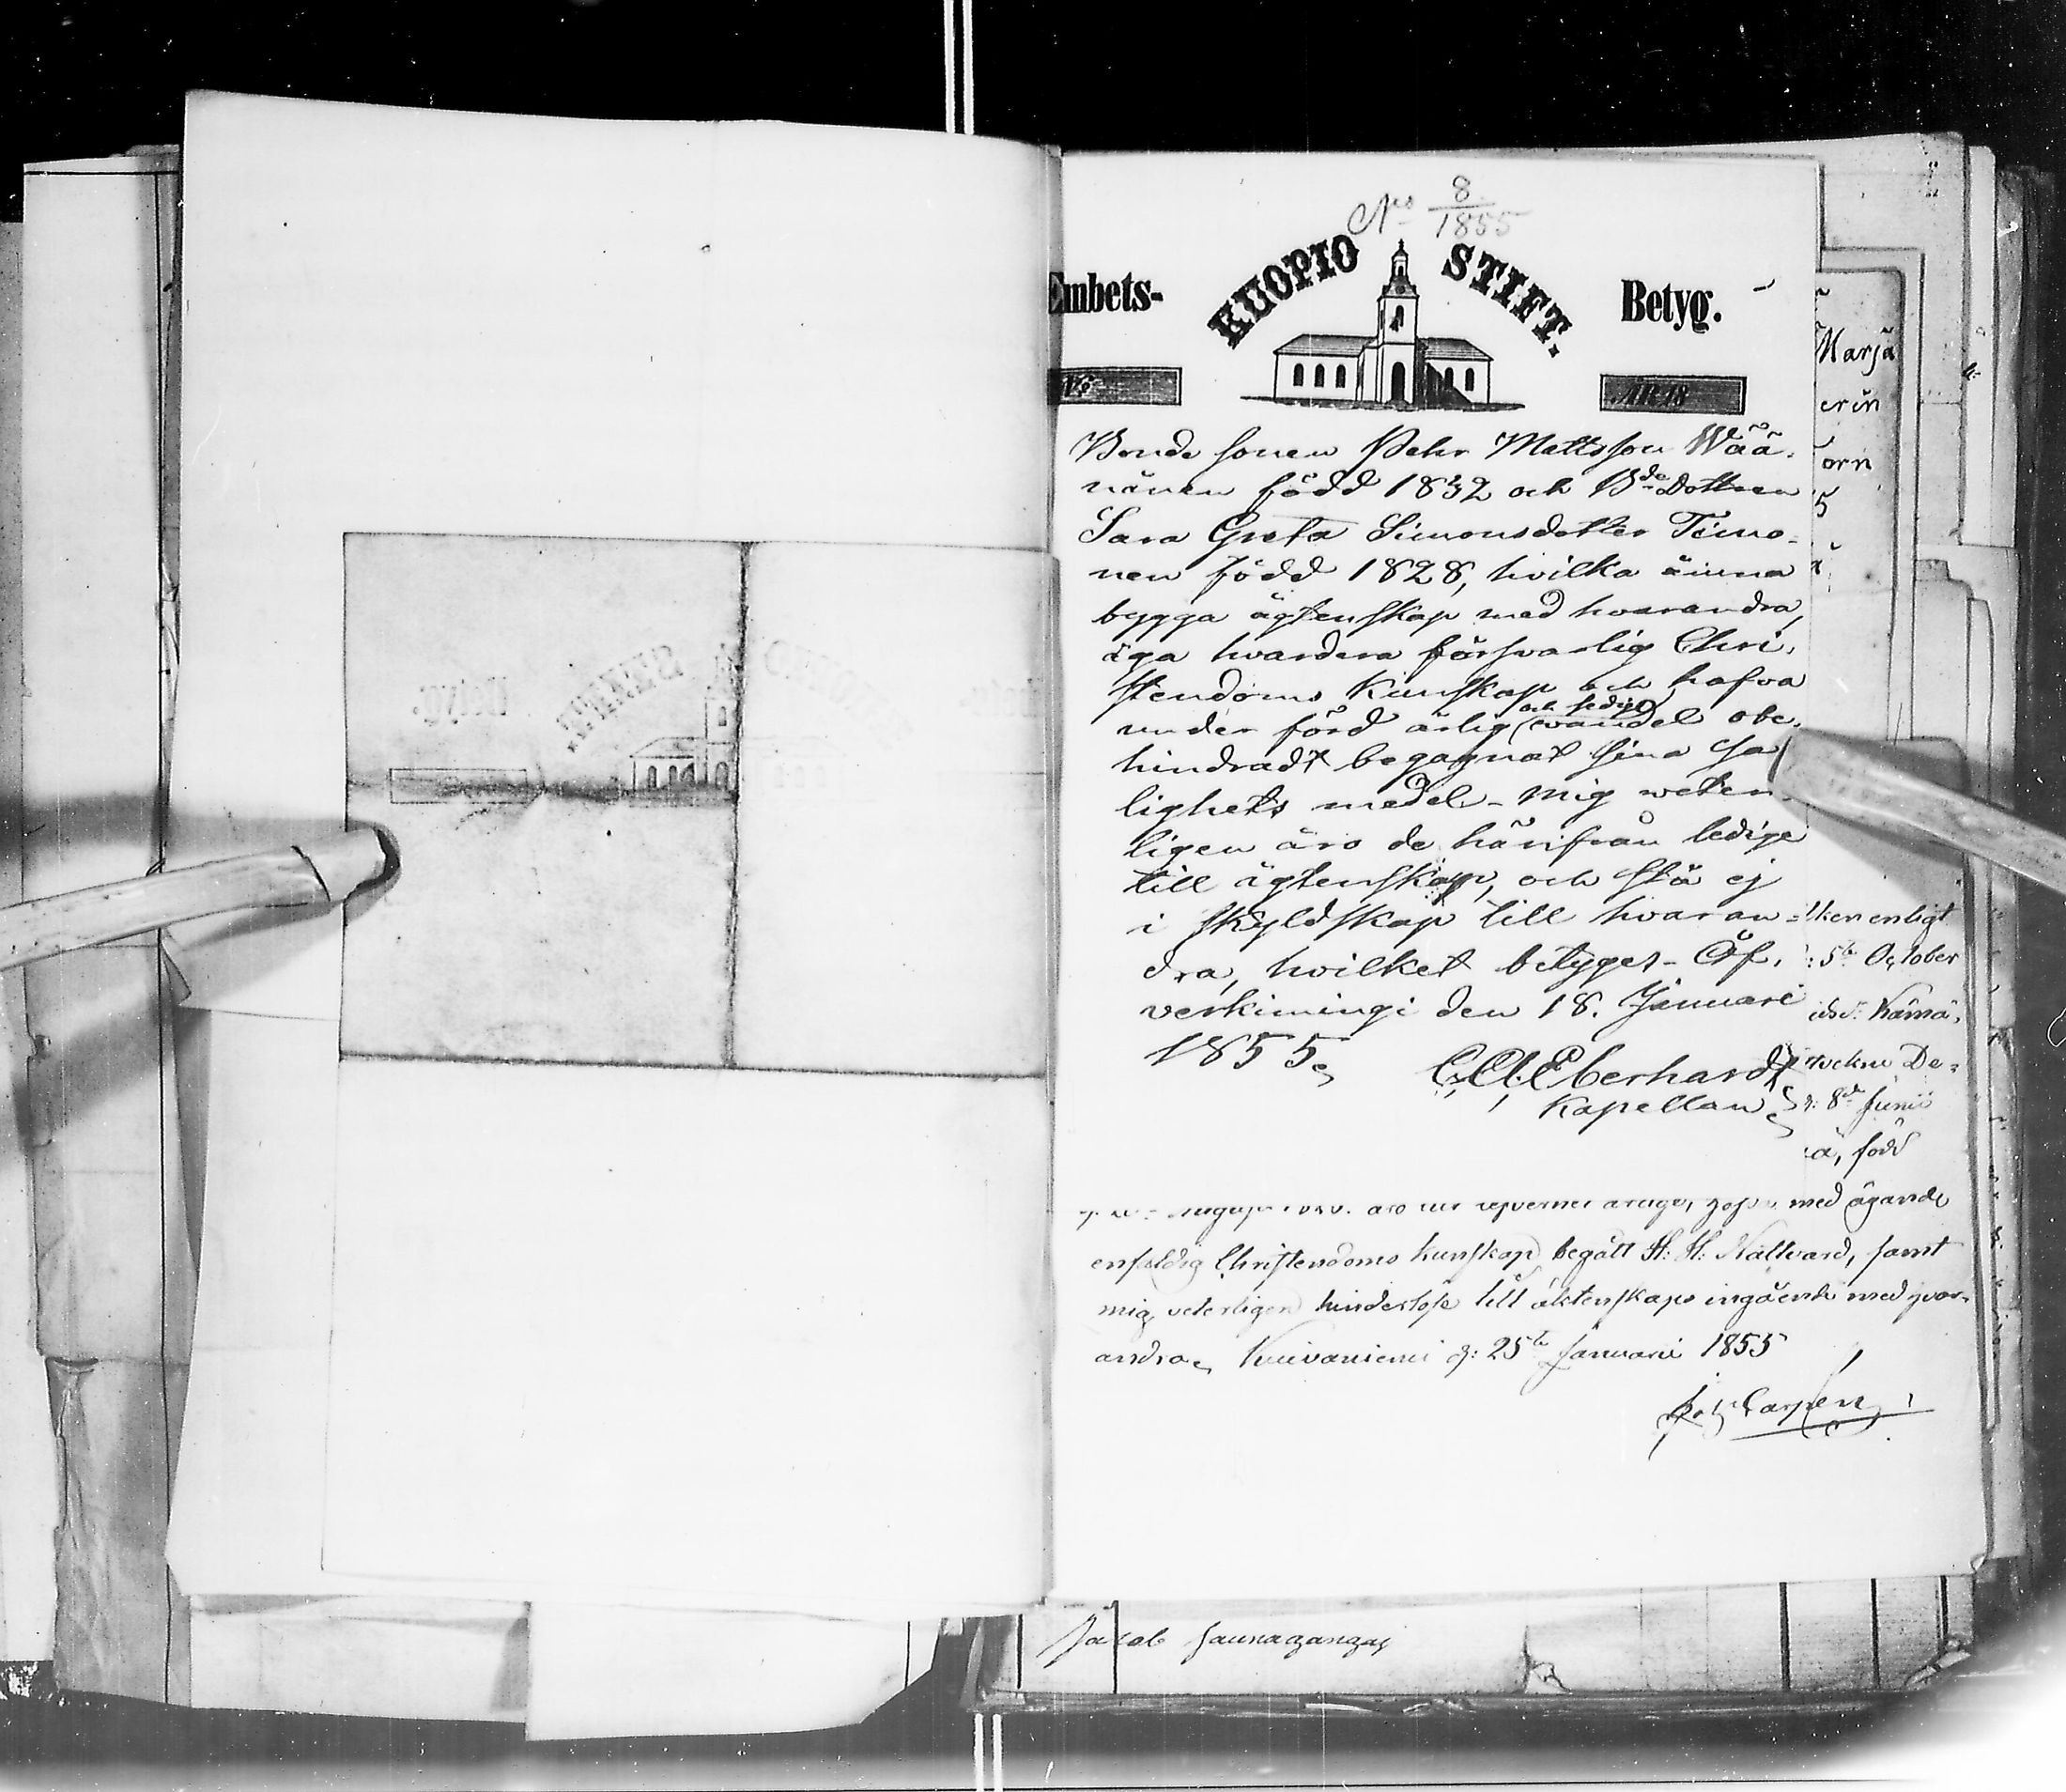 No 8/1855
Embets-
KUOPIO STIFT.
Betyg.
No
ÅR 18
Bonde sonen Pehr Mattsson Wää-
nänen född 1832 och Bde Dottren
Sara Greta Simonsdotter Timo-
nen född 1828, hvilka ämna
bygga ägtenskap med hvarandra,
äga hvardera försvarlig Chri-
stendoms Kunskap och hafva
under förd ärlig och sedig wandel obe-
hindradt begagnat sina Sa
lighets medel - mig weter-
ligen äro de härifrån ledige
till ägtenskap, och stå ej
i skyldskap till hvaran-
dra, hvilket betyges - Öf-
verkimingi den 18. Januari
1855.
Eberhardt
Kapellan
Marja
erin
orn
5
ken enligt
5te October
Kämä,
De-
8de Junii
a, född
med ägande
enfaldig Christendoms kunskap begått H: H: Nattvard, samt
mig veterligen hinderlöse till äktenskaps ingående med hvar-
andra, Kuivaniemi d: 25te Januarii 1855
Carpén
Jacob Saunagangas